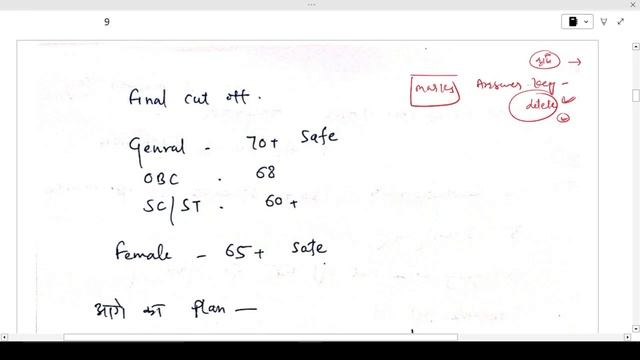 9
marks Answer key -
delete
Final cut off.
Genral - 70+ Safe
OBC . 68
SC/ST . 60+
Female - 65+ Safe
आगे का Plan —